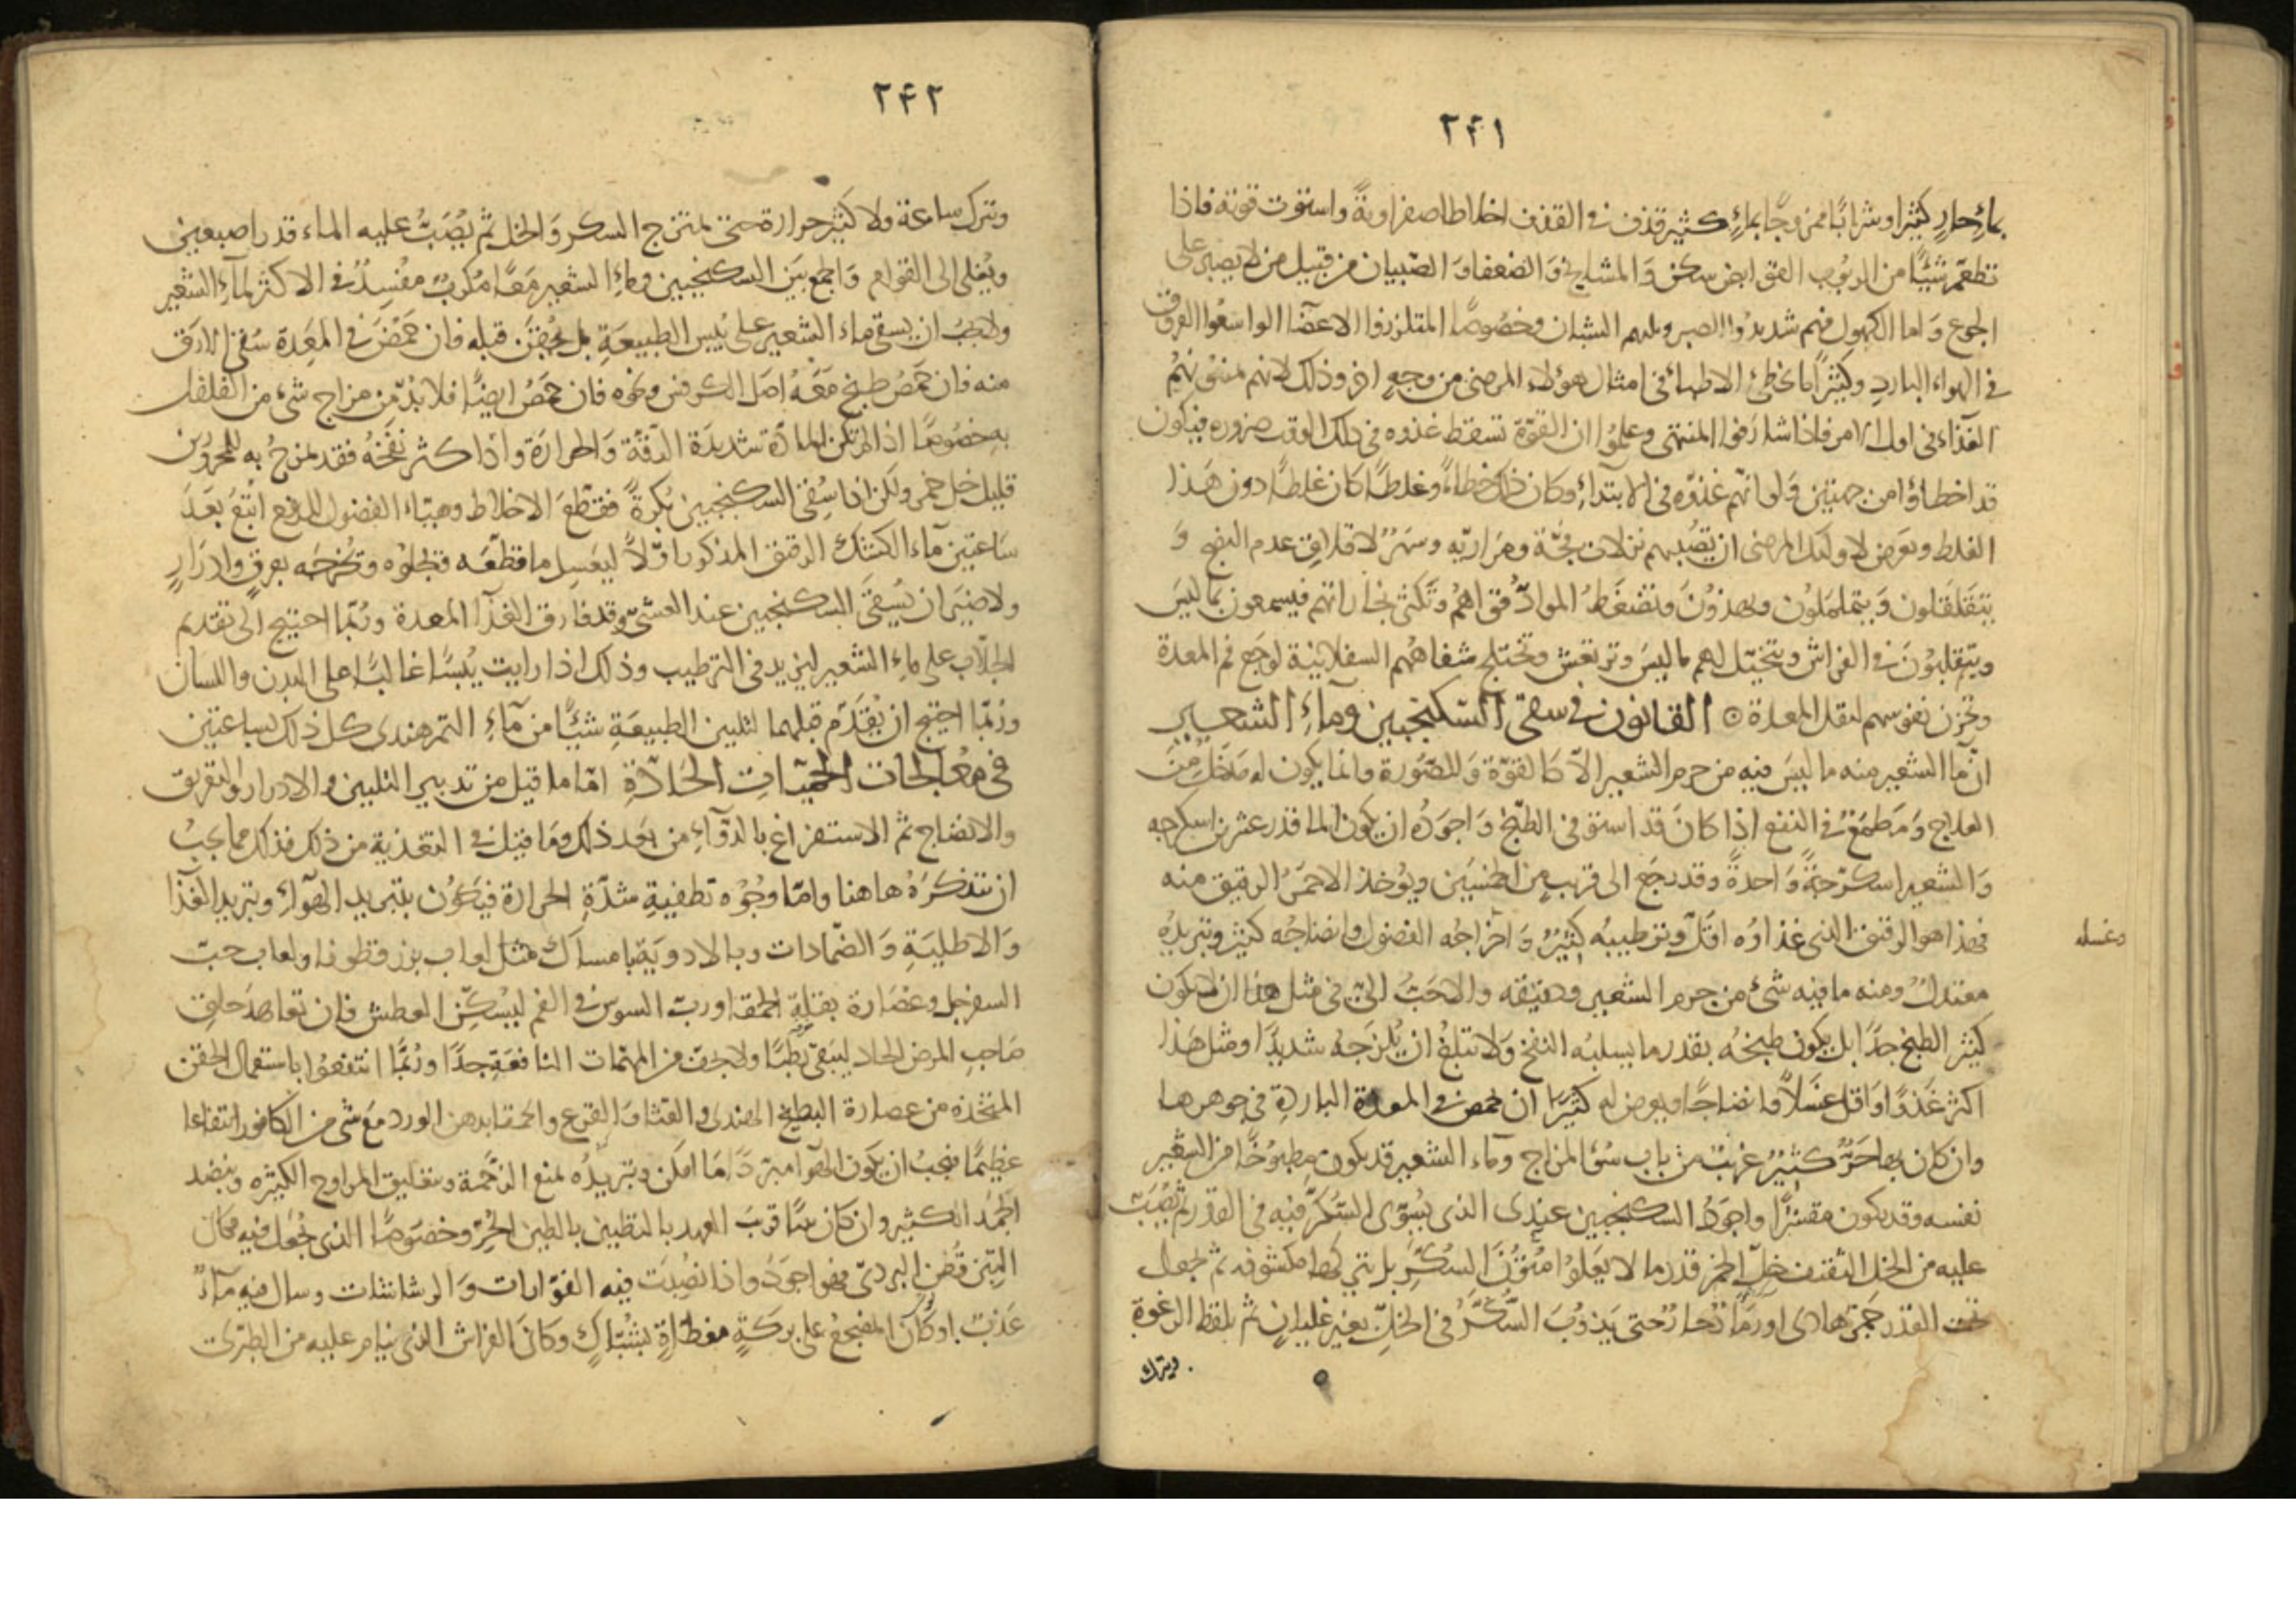 ٢٤١
بماءٍ حارٍ كثيرا وشرابًا ممزوجًا بماءٍ كثير قذف فى القذف اخلاطا صفراويةً واستوت قوته فاذا
تطعّم شيئًا من الربوب القوابض سكن وَالمشايخ وَالضعفا وَالصبيان من قبيل من لا يصبر على
الجوع وَاما الكهول فهم شديدُوا الصبر ويليهم الشبان وخصُوصًا المتلززوا الاعضا الواسعُوا العروق
فى الهواء البارد وكثيرًا ما يخطئ الاطباء فى امثال هؤلاء المرضى من وجهٍ اخر وذلك لانهم يمنعُونهُم
الغذاء فى اول الامر فاذا شارفوا المنتهى وعلموُا ان القوّة تسقط غذوه فى ذلك الوقت ضروره فيكون
قد اخطاؤا من جهتين وَلو انهّم غذوّه فى الابتداءِ وكان ذلك خطاءً وغلطًا كان غلطًا دون هَذا
الغلط ويعرض لاوليك المرضى ان تصُيبهم نزلات فجّة ومرَاريّه وسَهَرٌ لا قلاق عدم النضج وَ
يتقَلقَلون وَيتملمَلوُن ويهذوُنَ وتنضَغطُ الموادّ قواهُم وتكثر بخاراتهم فيسمعون ما ليسَ
ويتقلبُوَن فى الفراش ويتخيّل لهم ما ليسَ وترتعش وتختلج شفاههُم السفلانية لوجَع فم المعدة
وتحزن نفوسهم لثقل المعدة ⊙ القانون فى سقى السّكنجبين وماءِ الشعير
انّ ماَ الشعير منه ما ليسَ فيه من جرم الشعير الّا كالقوّة وَالصّوُرة وانما يكون له مَدخَل من
العلاج وَمَطمَعٌ فى النفع اذا كانَ قد استوفى الطبخ وَاجوَدُه ان يكون الما قدر عشرين اسكرجه
وَالشعير اسكرّجةً وَاحدةً وقد رجَع الى قريب من الخمسين ويوُخذ الاحمَرُ الرقيق منه
فهذا هو الرقيق الذى غذاوُه اقَلّ وترطيبهُ كثيرٌ وَاخراجُه الفضول وانضاجُه كثير وتبريدُه
وغسله
معتدلٌ ومنه ما فيه شئ من جرم الشعير ودقيقه والاحَبّ الىّ فى مثل هذا ان لا يكون
كثير الطبخ جدًا بل يكون طبخُه بقدر ما يسلبه النفخ وَلا تبلغُ ان يُلزجَه شديدًا ومثل هَذا
اكثر غَذوًا وَاقل غسلًا وانضاجًا ويعرض له كثيرًا ان يحمض فى المعدة الباردة فى جوهرها
وان كان بها حَرّ كثيرٌ غريبٌ من باب سُو المزاج وماء الشعير قد يكون مطبوُخًا من الشعير
نفسه وقد يكون مقشرًا واجوَدُ السكنجبين عندى الذى يسُوّى السّكرّ فيه فى القدر ثم يُصَبّ
عليه من الخل الثقيف خلّ الخمر قدر ما لا يَعلوُ امتُونَ السُكّر بل تبقى كما مكشوفه ثم يجعل
تحت القدر جمَرٌ هادى اورمَادٌ حارٌ حتى يَذوُبَ السّكَّرُ فى الخلّ بغير غليان ثم يلقط الرغوة
ويترك

٢٤٢
وتترك ساعة ولا كثير حرارة حتى تمتزج السكر وَالخل ثم يُصَبُّ عليه الماء قدر اصبعين
ويُغلى الى القوام وَالجمع بَين السكنجبين وماءِ الشعير مَعًا مكرُوبٌ مفْسِدٌ فى الاكثر لماءِ الشعير
ولا يجبُ ان يسقى ماء الشعير على يُبس الطبيعَة بل يحُقنَ قبله فان حَمُضَ فى المَعِدة سُقى الارَق
منه فان حمَضُ طبخ مَعَهُ اصَل الكرفس ونحوه فان حمَضُ ايضًا فلا بُدّ من مزاج شىء من الفلفل
به خصُوصًا اذا لم تكن المادّة شديدَة الدّقّة وَالحرارَة واذا كثر نَفخهُ فقد يمزجُ به للمحرُورين
قليل خل خمر ولكن اذا سُقى السكنجبين بُكرةً فقطّعَ الاخلاط وهيّاء الفضول للدفع اتبعُ بَعدَ
سَاعتين ماَء الكشك الرقيق المذكور اوّلًا ليغسِل ما قطّعَه ويجلوُه ويُخرجَه بعرقٍ وادرَارٍ
ولا ضيَر ان يسُقىَ السكنجبين عند العشىّ وقد فارق الغذآ المعدة ورُبّما احتيج الى تقديم
الجلّاب على ماءِ الشعير ليزيد فى الترطيب وذلك اذا رايت يُبسًا غالبًا على البدن واللسان
ورُبّما احتيج ان يُقدّم قبلهما لتليين الطبيعَةِ شيئًا من مآءِ التمرهندى كل ذلك بساعتين
فى معَالجات الحميّاتِ الحَادّةِ امّا ما قيل من تدبير التليين والادرار والتعريق
والانضاج ثم الاستفراغ بالدوّآءِ من بعد ذلك ومَا قيل فى التغذية من ذلك فذلك مما يجبُ
ان نتذكرَهُ هاهنا وامّا وجُوُه تطفيةِ شدّةِ الحرارة فيَكوُن بتبريد الهوآءِ وتبريد الغذآ
وَالاطليَةِ وَالضّمادات وبالادوَية بامساك مثل لعاب بزرقطونا ولعاب حبّ
السفرجل وعصَارة بقلة الحمقا وربّ السوس فى الفم ليُسكّن العطش فان تعاهدَ حلق
صَاحبِ المرض الحاد ليَبقى رَطبًا ولا يجفّ من المهمّات النافعَةِ جدًا ورُبّما انتفعُوا باستعمال الحقن
المتخذه من عصارة البطيخ الهندى والقثا وَالقرع والحمقا بدهن الورد مَع شى من الكافور انتفاعا
عظيمًا فيجبُ ان يكون الهوآ مبرّدًا مَا امكن وتبريدُه بمنع الزّحمة وبتعليق المراوح الكبيره وبنضد
الجَمد الكثير وان كان بيتًا قريبَ العهد بالتطيين بالطين الحُرّ وخصُوصًا الذى جُعل فيه مكان
التبن قُطن البردىّ فهو اجوَدُ واذا نُصِبَت فيه الفوّارات وَالرشاشات وسال فيه مآءٌ
عَذبٌ اوكَان المضجعُ على بركةٍ مغطّاةٍ بشُبّاكٍ وكانَ الفراش الذى ينام عليه من الطبرى